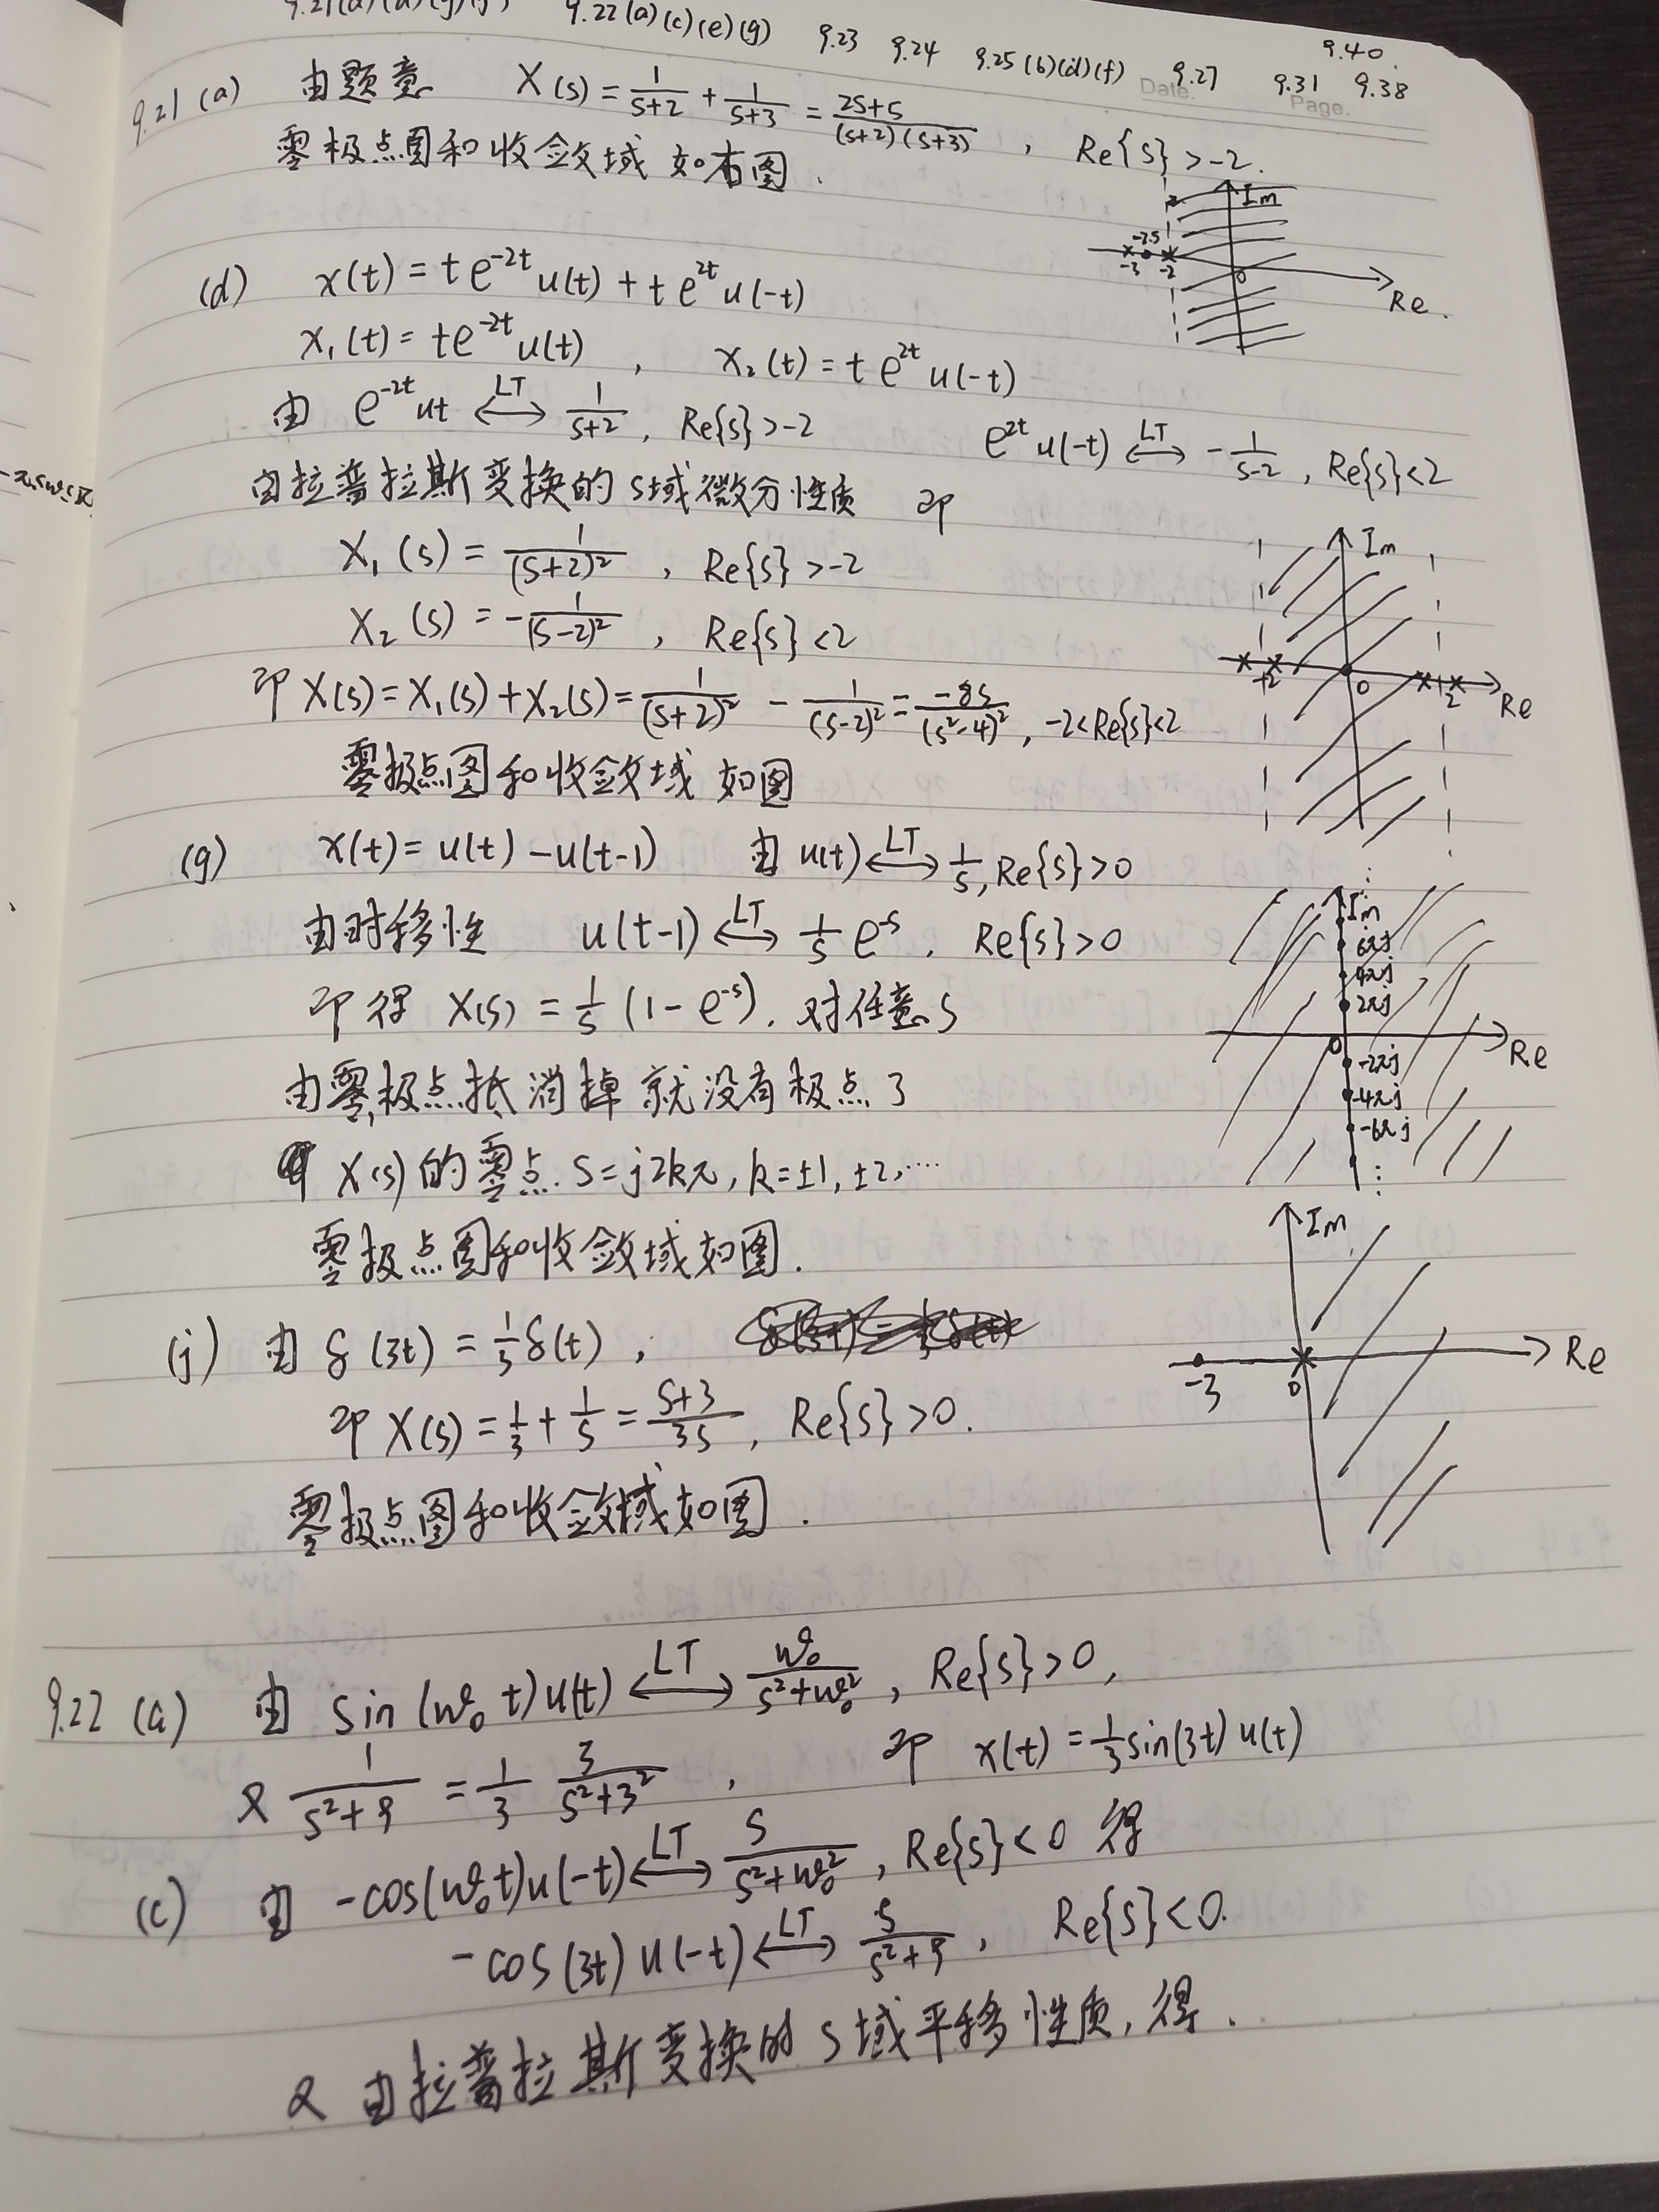 9.22(a)(c)(e)(g) 9.23 9.24 9.25(b)(d)(f) 9.27 9.31 9.38 9.40
Date. Page.
9.21 (a) 由题意 X(s)=1/(s+2) + 1/(s+3) = (2s+5)/((s+2)(s+3)), Re{s}>-2.
零极点图和收敛域如右图.
Im
-2.5
-3 -2 0
Re.
(d) x(t)=te^{-2t}u(t)+te^{2t}u(-t)
x₁(t)=te^{-2t}u(t), x₂(t)=te^{2t}u(-t)
由 e^{-2t}ut ⟷LT 1/(s+2), Re{s}>-2 e^{2t}u(-t) ⟷LT -1/(s-2), Re{s}<2
由拉普拉斯变换的s域微分性质 即
X₁(s)=1/(s+2)², Re{s}>-2
X₂(s)=-1/(s-2)², Re{s}<2
即X(s)=X₁(s)+X₂(s)=1/(s+2)² - 1/(s-2)²=-8s/(s²-4)², -2<Re{s}<2
Im
0 2 Re
零极点图和收敛域如图
(g) x(t)=u(t)-u(t-1) 由u(t)⟷LT 1/s, Re{s}>0
由时移性 u(t-1)⟷LT 1/s e^{-s}, Re{s}>0
即得 X(s)=1/s (1-e^{-s}). 对任意s
由零极点抵消掉就没有极点了
X(s)的零点. s=j2kπ, k=±1,±2,····
零极点图和收敛域如图.
Im
6πj
4πj
2πj
0 Re
-2πj
-4πj
-6πj
(j) 由 δ(3t)=1/3δ(t),
即 X(s)=1/3+1/s=(s+3)/3s, Re{s}>0.
零极点图和收敛域如图.
Im
-3 0 Re
9.22 (a) 由 sin(w₀t)u(t) ⟷LT w₀/(s²+w₀²), Re{s}>0,
又 1/(s²+9)=1/3 3/(s²+3²), 即 x(t)=1/3sin(3t)u(t)
(c) 由 -cos(w₀t)u(-t)⟷LT s/(s²+w₀²), Re{s}<0 得
-cos(3t)u(-t)⟷LT s/(s²+9), Re{s}<0.
又 由拉普拉斯变换的s域平移性质,得.